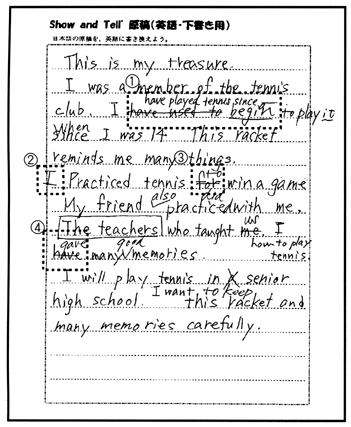 Show and Tell 原稿(英語・下書き用)
日本語の原稿を、英語に書き換えよう。
This is my treasure.
①
I was a member of the tennis
have played tennis since
club. I have used to begin to play it
When
since I was 14 This racket
② ③
reminds me many things.
I Practiced tennis for win a game
also did
My friend practiced with me.
④ us
The teachers who taught me I
gave good how to play
have many memories. tennis.
I will play tennis in senior
I want to keep
high school this racket and
many memories carefully.